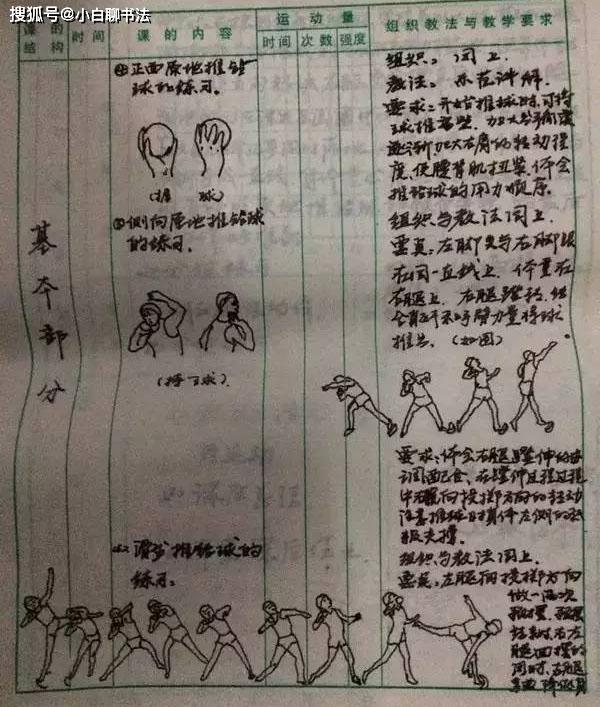 搜狐号@小白聊书法
课的结构
时间
课的内容
运动量
时间
次数
强度
组织教法与教学要求
基本部分
④正面原地推铅
球的练习。
(握 球)
⑤侧向原地推铅球
的练习。
(持球)
滑步推铅球的
练习。
组织:同上.
教法:示范讲解.
要求:开始推球时,可将
球推高些,加大
逐渐加大左肩的转动程
度,使腰背肌扭紧,体会
推铅球的用力顺序。
组织与教法同上.
要点:左脚尖与右脚跟
在同一直线上.体重在
右腿上.右腿蹬转,
和手臂力量将球
推出。(如图)
要求:体会右腿蹬伸的
配合、在蹬伸过程
中向投掷方向的转动
注意推球时身体左侧的
支撑.
组织与教法同上.
要点:左腿向投掷方向
做一两次
预摆,预摆
结束时,
左腿回摆的
同时,右腿